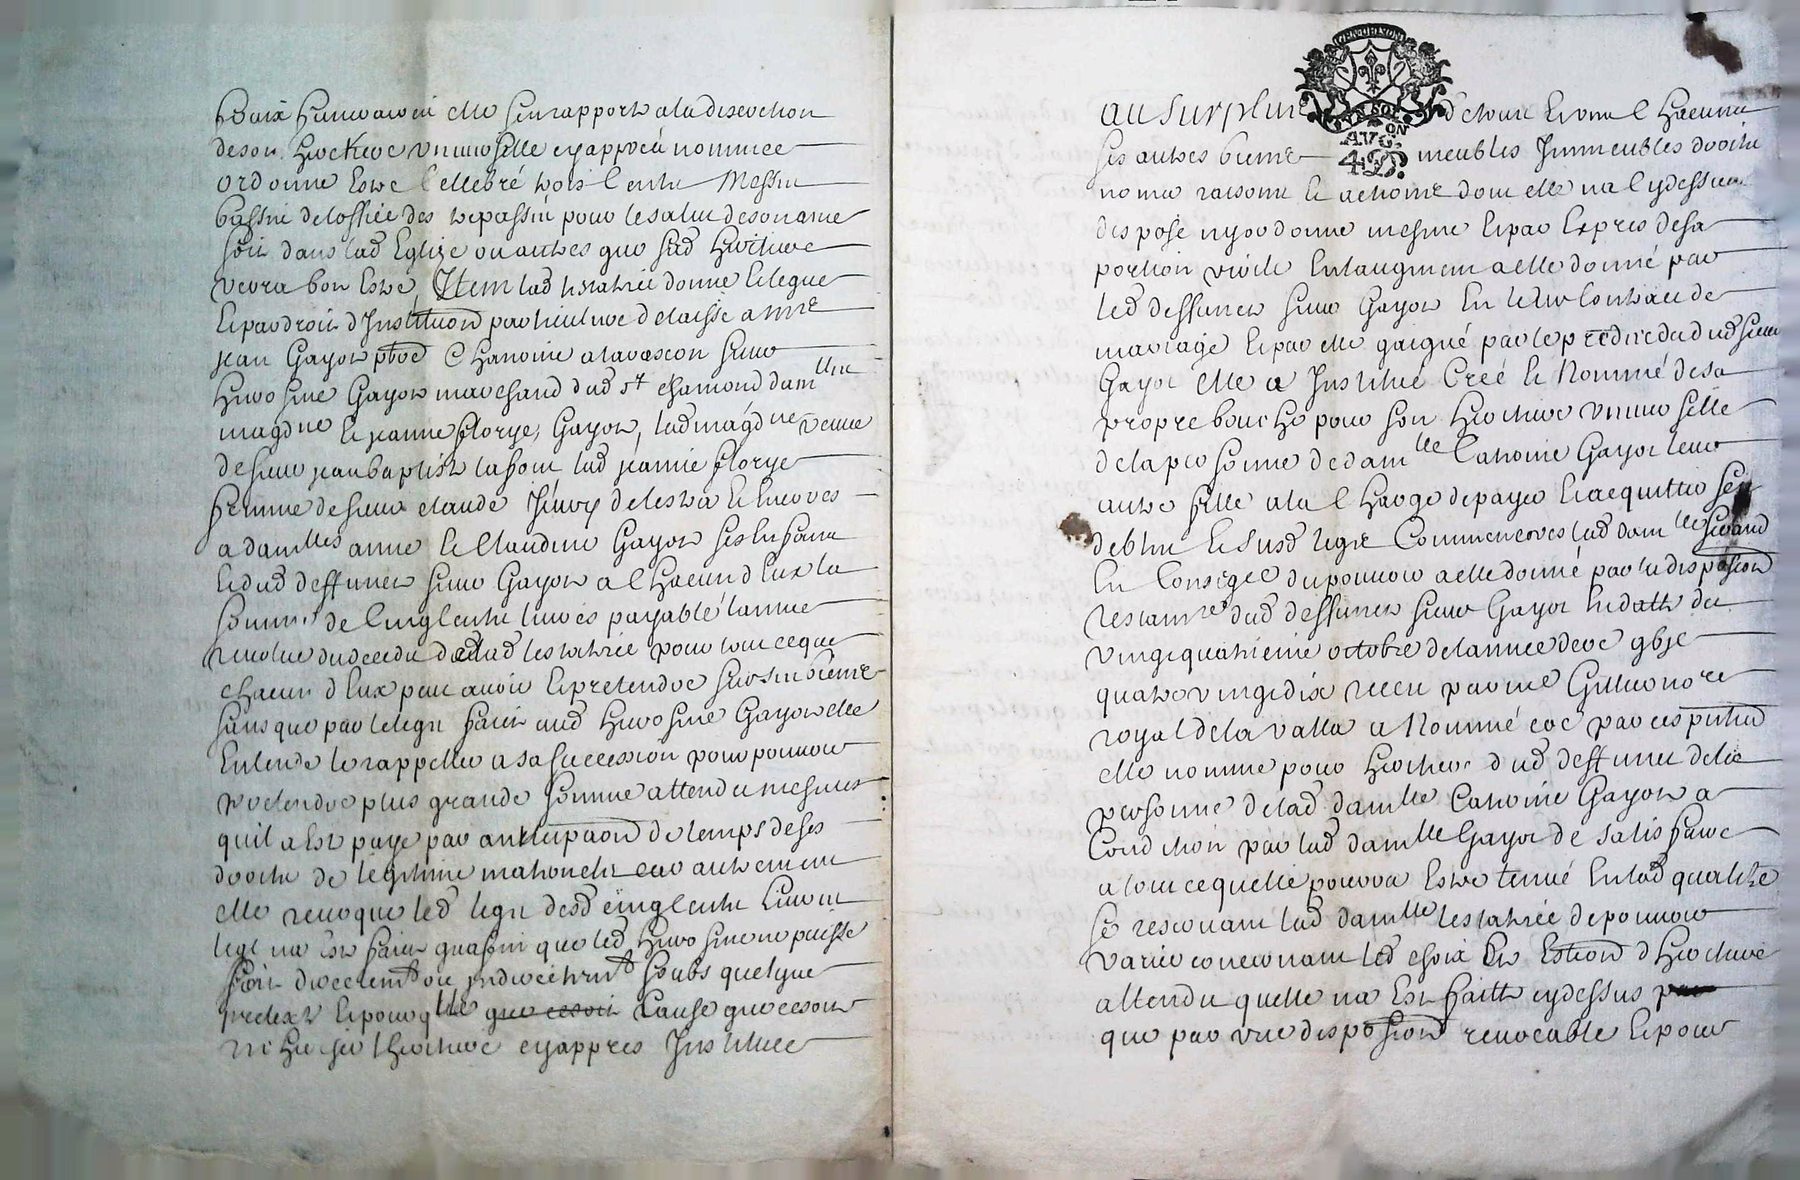 fraix funeraux elle s'en rapporte a la discretion
de son heritiere universelle cy apprés nommée
ordonne estre cellebré trois cents Messes
basses de l'office des trepassés pour le salut de son ame
soit dans lad Eglize ou autres que sad heritiere
verra bon estre, Item lad testatrice donne et legue
et par droit d'Institution particuliere delaisse a mre
jean Gayot pbre Chanoine a tarascon sieur
hierosme Gayot marchand dud st chamond damlles
magdne et jeanne florye Gayot, lad magdne veuve
de sieur jean baptiste lad jeanne florye
femme de sieur claude et encores
a damlles anne et Claudine Gayot ses enfans
et dud deffunct sieur Gayot a chacun d'eux la
somme de cinq cents livres payable l'année
revolue du deceds de lad testatrice pour tout ce que
chacun d'eux peut avoir et pretendre sur ses biens
sans que par le legs fait aud hierosme Gayot elle
entende le rappeller a sa succession pour pouvoir
pretendre plus grande somme attendu mesmes
qu'il a esté payé par anticipaon de temps de ses
droits de legitime maternels car autrement
elle revoque led legs desd cinq cents livres
legs n'a esté fait qu'affin que led hierosme ne puisse
soit directemt ou indirectemt soubs quelque
pretexte et pour qlle que ce soit cause que ce soit
l'heritiere cy apprés Instituée
au surplus d'chacuns
ses autres biens meubles Immeubles droits
noms raisons et actions dont elle n'a cy dessus
disposé ny ordonné mesme et par exprés de sa
portion virile en l'augment a elle donné par
led deffunct sieur Gayot en leur contract de
mariage et par elle gaigné par le predecéd dud sieur
Gayot elle a Institué Créé et Nommé de sa
propre bouche pour son heritiere universelle
de la personne de damlle Catherine Gayot leur
autre fille a la charge de payer et acquitter ses
debtes et susd legs Comme encores lad damlle
en conseqce du pouvoir a elle donné par la disposion
testamre dud deffunct sieur Gayot en datte du
vingt quatrieme octobre de l'année
quatre vingt dix receu par me notre
royal de la valla a Nommé par ces presentes
elle nomme pour heritiere dud deffunct de la
personne de lad damlle Catherine Gayot a
condition par lad damlle Gayot de satisfaire
a tout ce quelle pourra estre tenue en lad qualité
se reservant lad damlle testatrice de pouvoir
varier concernant led choix et d'heritiere
attendu quelle n'a esté faitte cy dessus par
que par une disposion revocable et pour